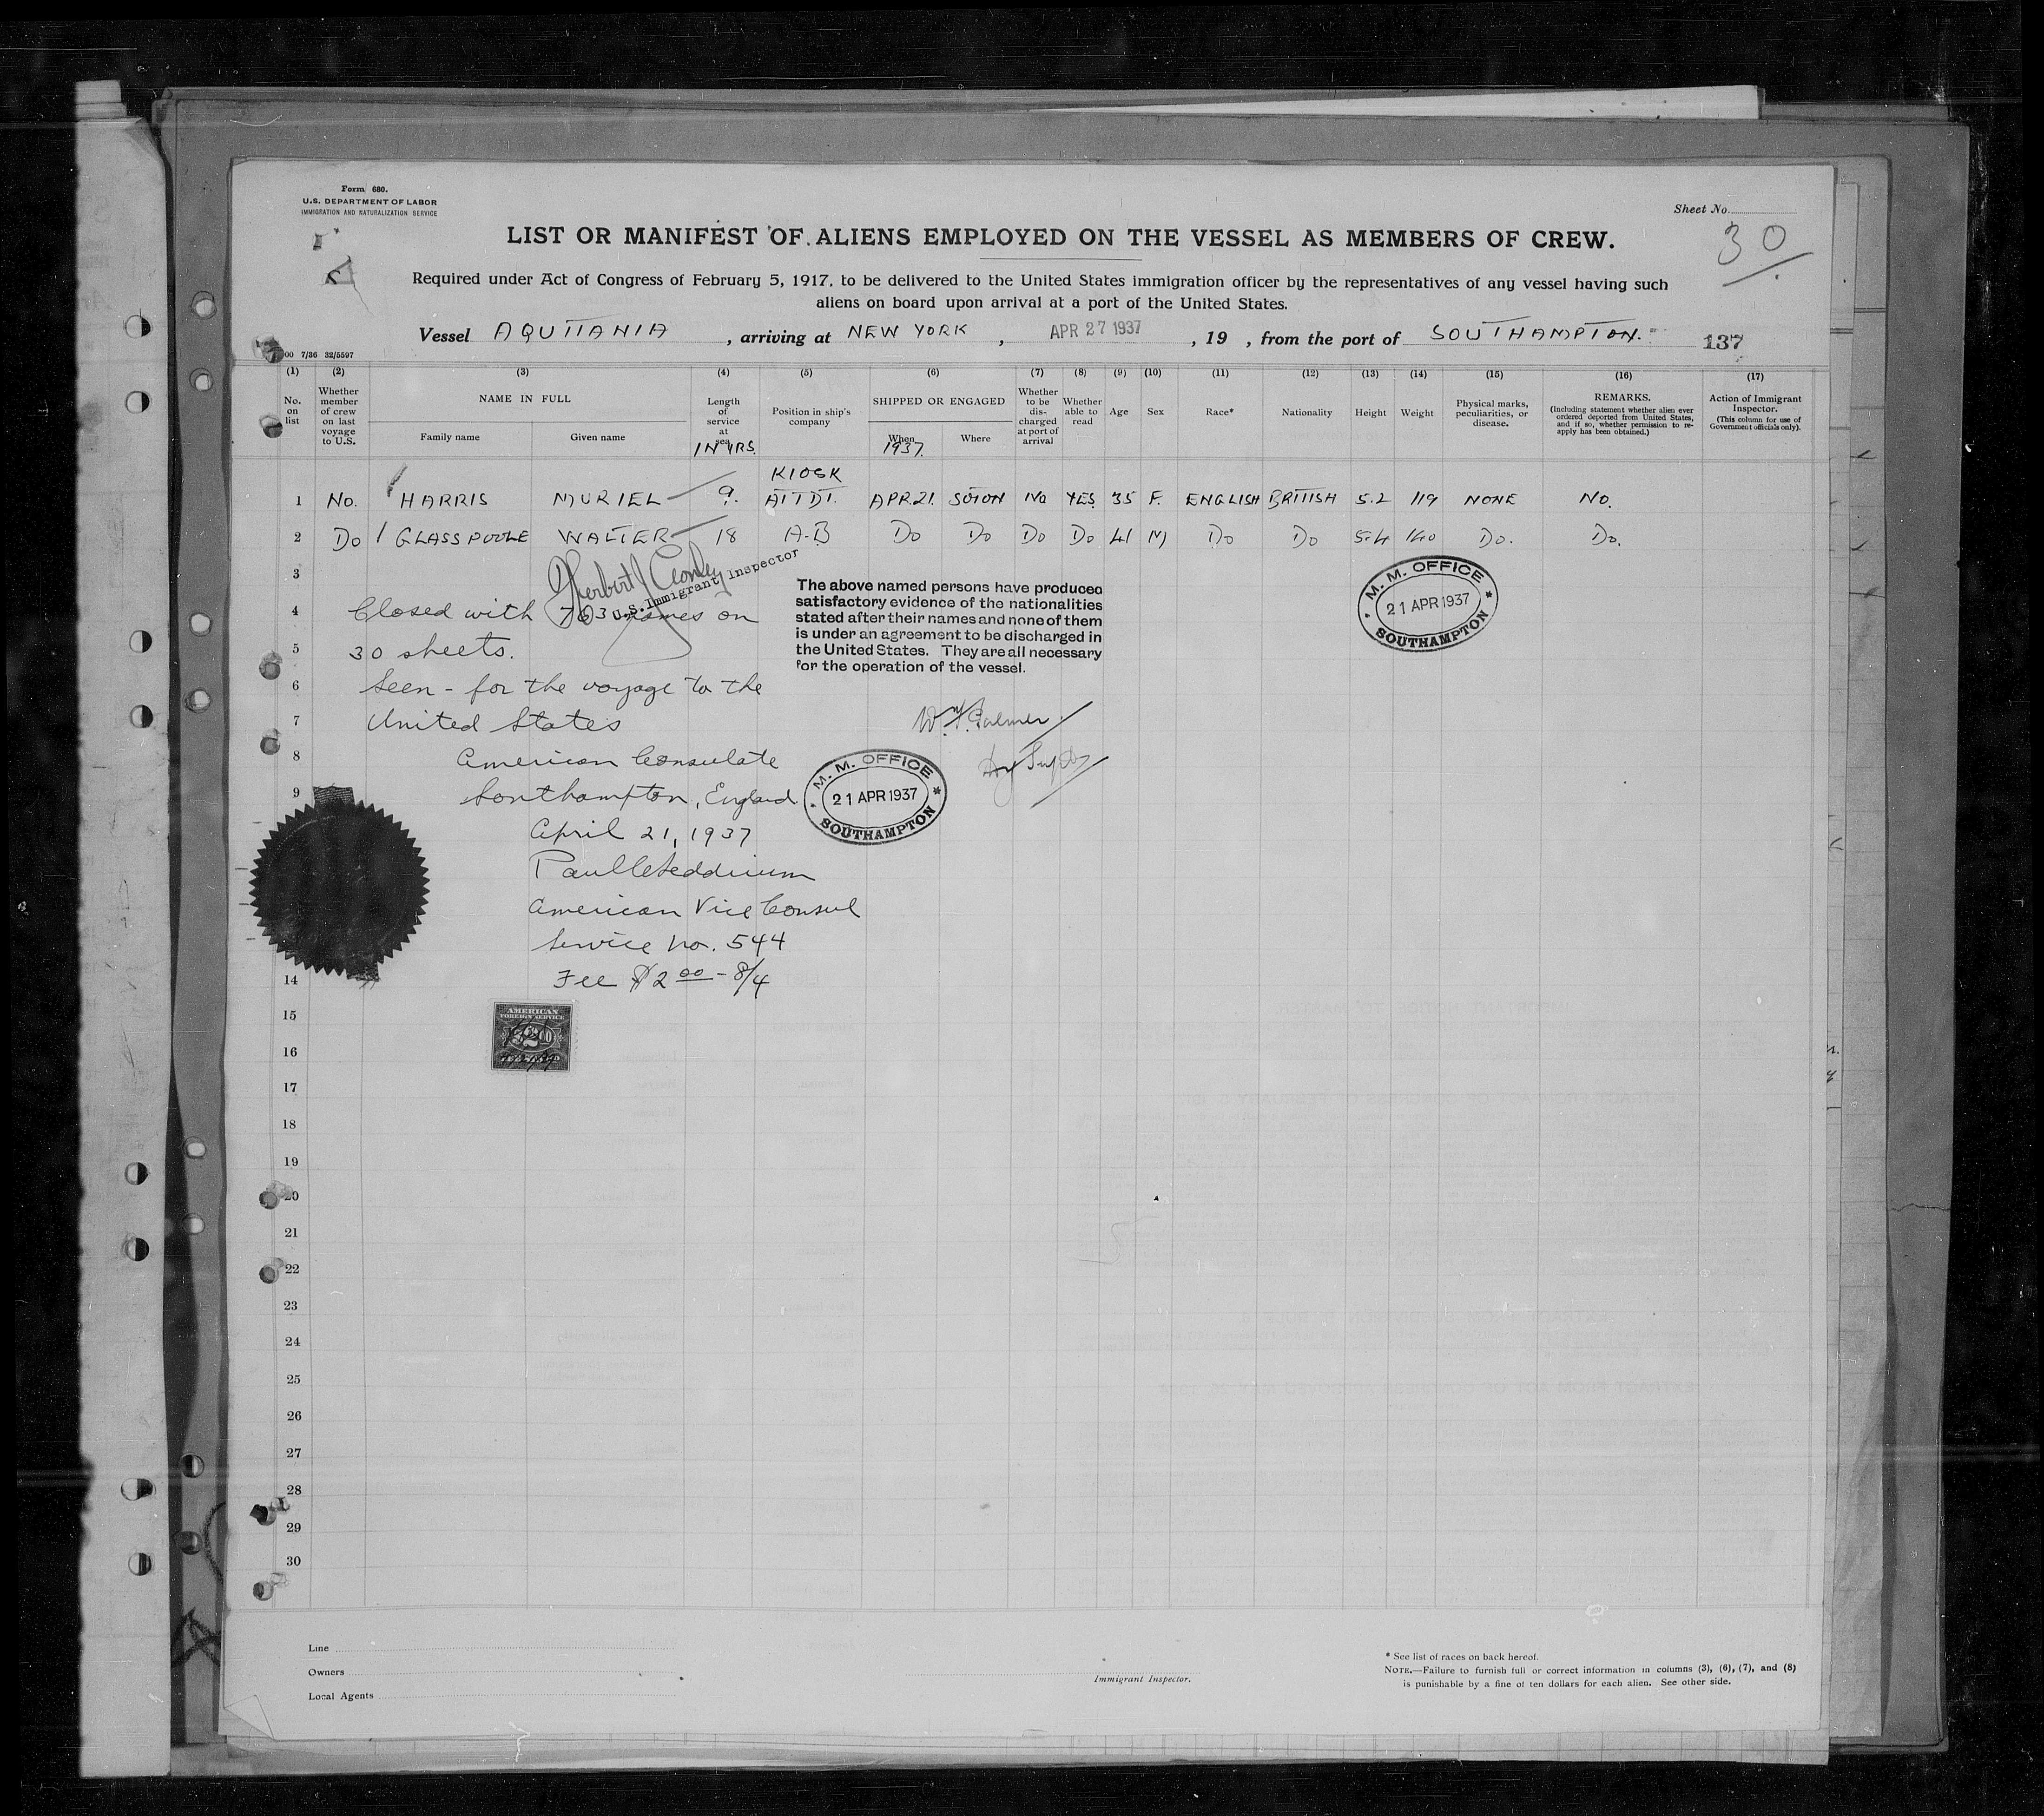 Form 680.
U.S. DEPARTMENT OF LABOR
IMMIGRATION AND NATURALIZATION SERVICE
Sheet No.
30
LIST OR MANIFEST OF ALIENS EMPLOYED ON THE VESSEL AS MEMBERS OF CREW.
Required under Act of Congress of February 5, 1917, to be delivered to the United States immigration officer by the representatives of any vessel having such
aliens on board upon arrival at a port of the United States.
Vessel AQUITANIA, arriving at NEW YORK, APR 27 1937, 19 , from the port of SOUTHAMPTON. 137
00 7/36 32/5597
(1) (2) (3) (4) (5) (6) (7) (8) (9) (10) (11) (12) (13) (14) (15) (16) (17)
No. on list
Whether member of crew on last voyage to U.S.
NAME IN FULL
Family name
Given name
Length of service at sea
IN YRS.
Position in ship's company
SHIPPED OR ENGAGED
When
1937.
Where
Whether to be discharged at port of arrival
Whether able to read
Age
Sex
Race*
Nationality
Height
Weight
Physical marks, peculiarities, or disease.
REMARKS.
(Including statement whether alien ever ordered deported from United States, and if so, whether permission to re-apply has been obtained.)
Action of Immigrant Inspector.
(This column for use of Government officials only).
1 No. HARRIS MURIEL 9. KIOSK ATTDT. APR.21. SOTON NO YES. 35 F. ENGLISH BRITISH 5.2 119 NONE NO.
2 Do GLASSPOOLE WALTER 18 A.B Do Do Do Do 41 M Do Do 5.4 140 Do. Do.
3
U.S. Immigrant Inspector
4 Closed with 763 names on
5 30 sheets.
6 Seen - for the voyage to the
7 United States
8 American Consulate
9 Southampton, England.
April 21, 1937
American Vice Consul
Service No. 544
14 Fee $2 00 - 8/4
The above named persons have produced
satisfactory evidence of the nationalities
stated after their names and none of them
is under an agreement to be discharged in
the United States. They are all necessary
for the operation of the vessel.
M. M. OFFICE
21 APR 1937
SOUTHAMPTON
M. M. OFFICE
21 APR 1937
SOUTHAMPTON
AMERICAN
FOREIGN SERVICE
15
16
17
18
19
20
21
22
23
24
25
26
27
28
29
30
Line
Owners
Local Agents
Immigrant Inspector.
* See list of races on back hereof.
NOTE.—Failure to furnish full or correct information in columns (3), (6), (7), and (8)
is punishable by a fine of ten dollars for each alien. See other side.